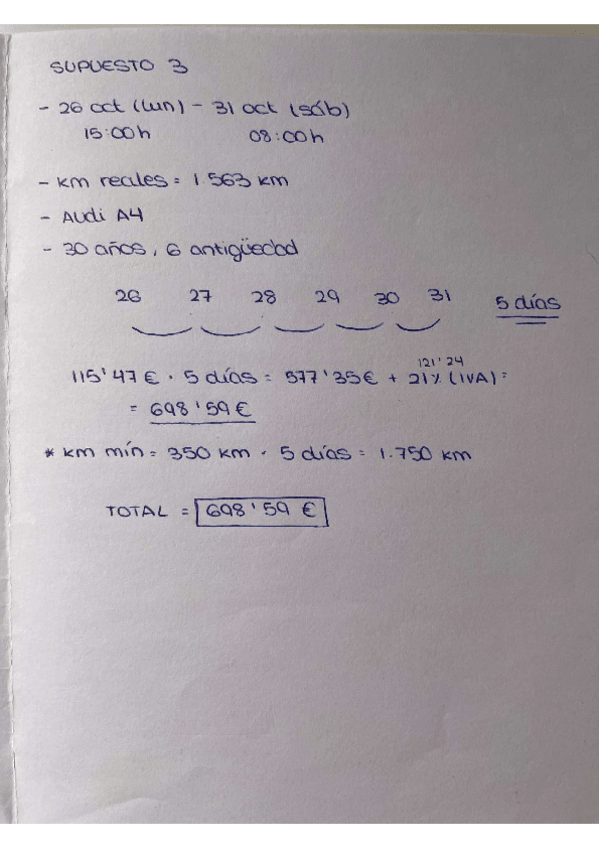 SUPUESTO 3
- 26 oct (lun) - 31 oct (sáb)
15:00h 08:00h
- km reales = 1.563 km
- Audi A4
- 30 años, 6 antigüedad
26 27 28 29 30 31 5 días
121'24
115'47 € · 5 días = 577'35€ + 21% (IVA) =
= 698'59 €
* km mín = 350 km · 5 días = 1.750 km
TOTAL = 698'59 €